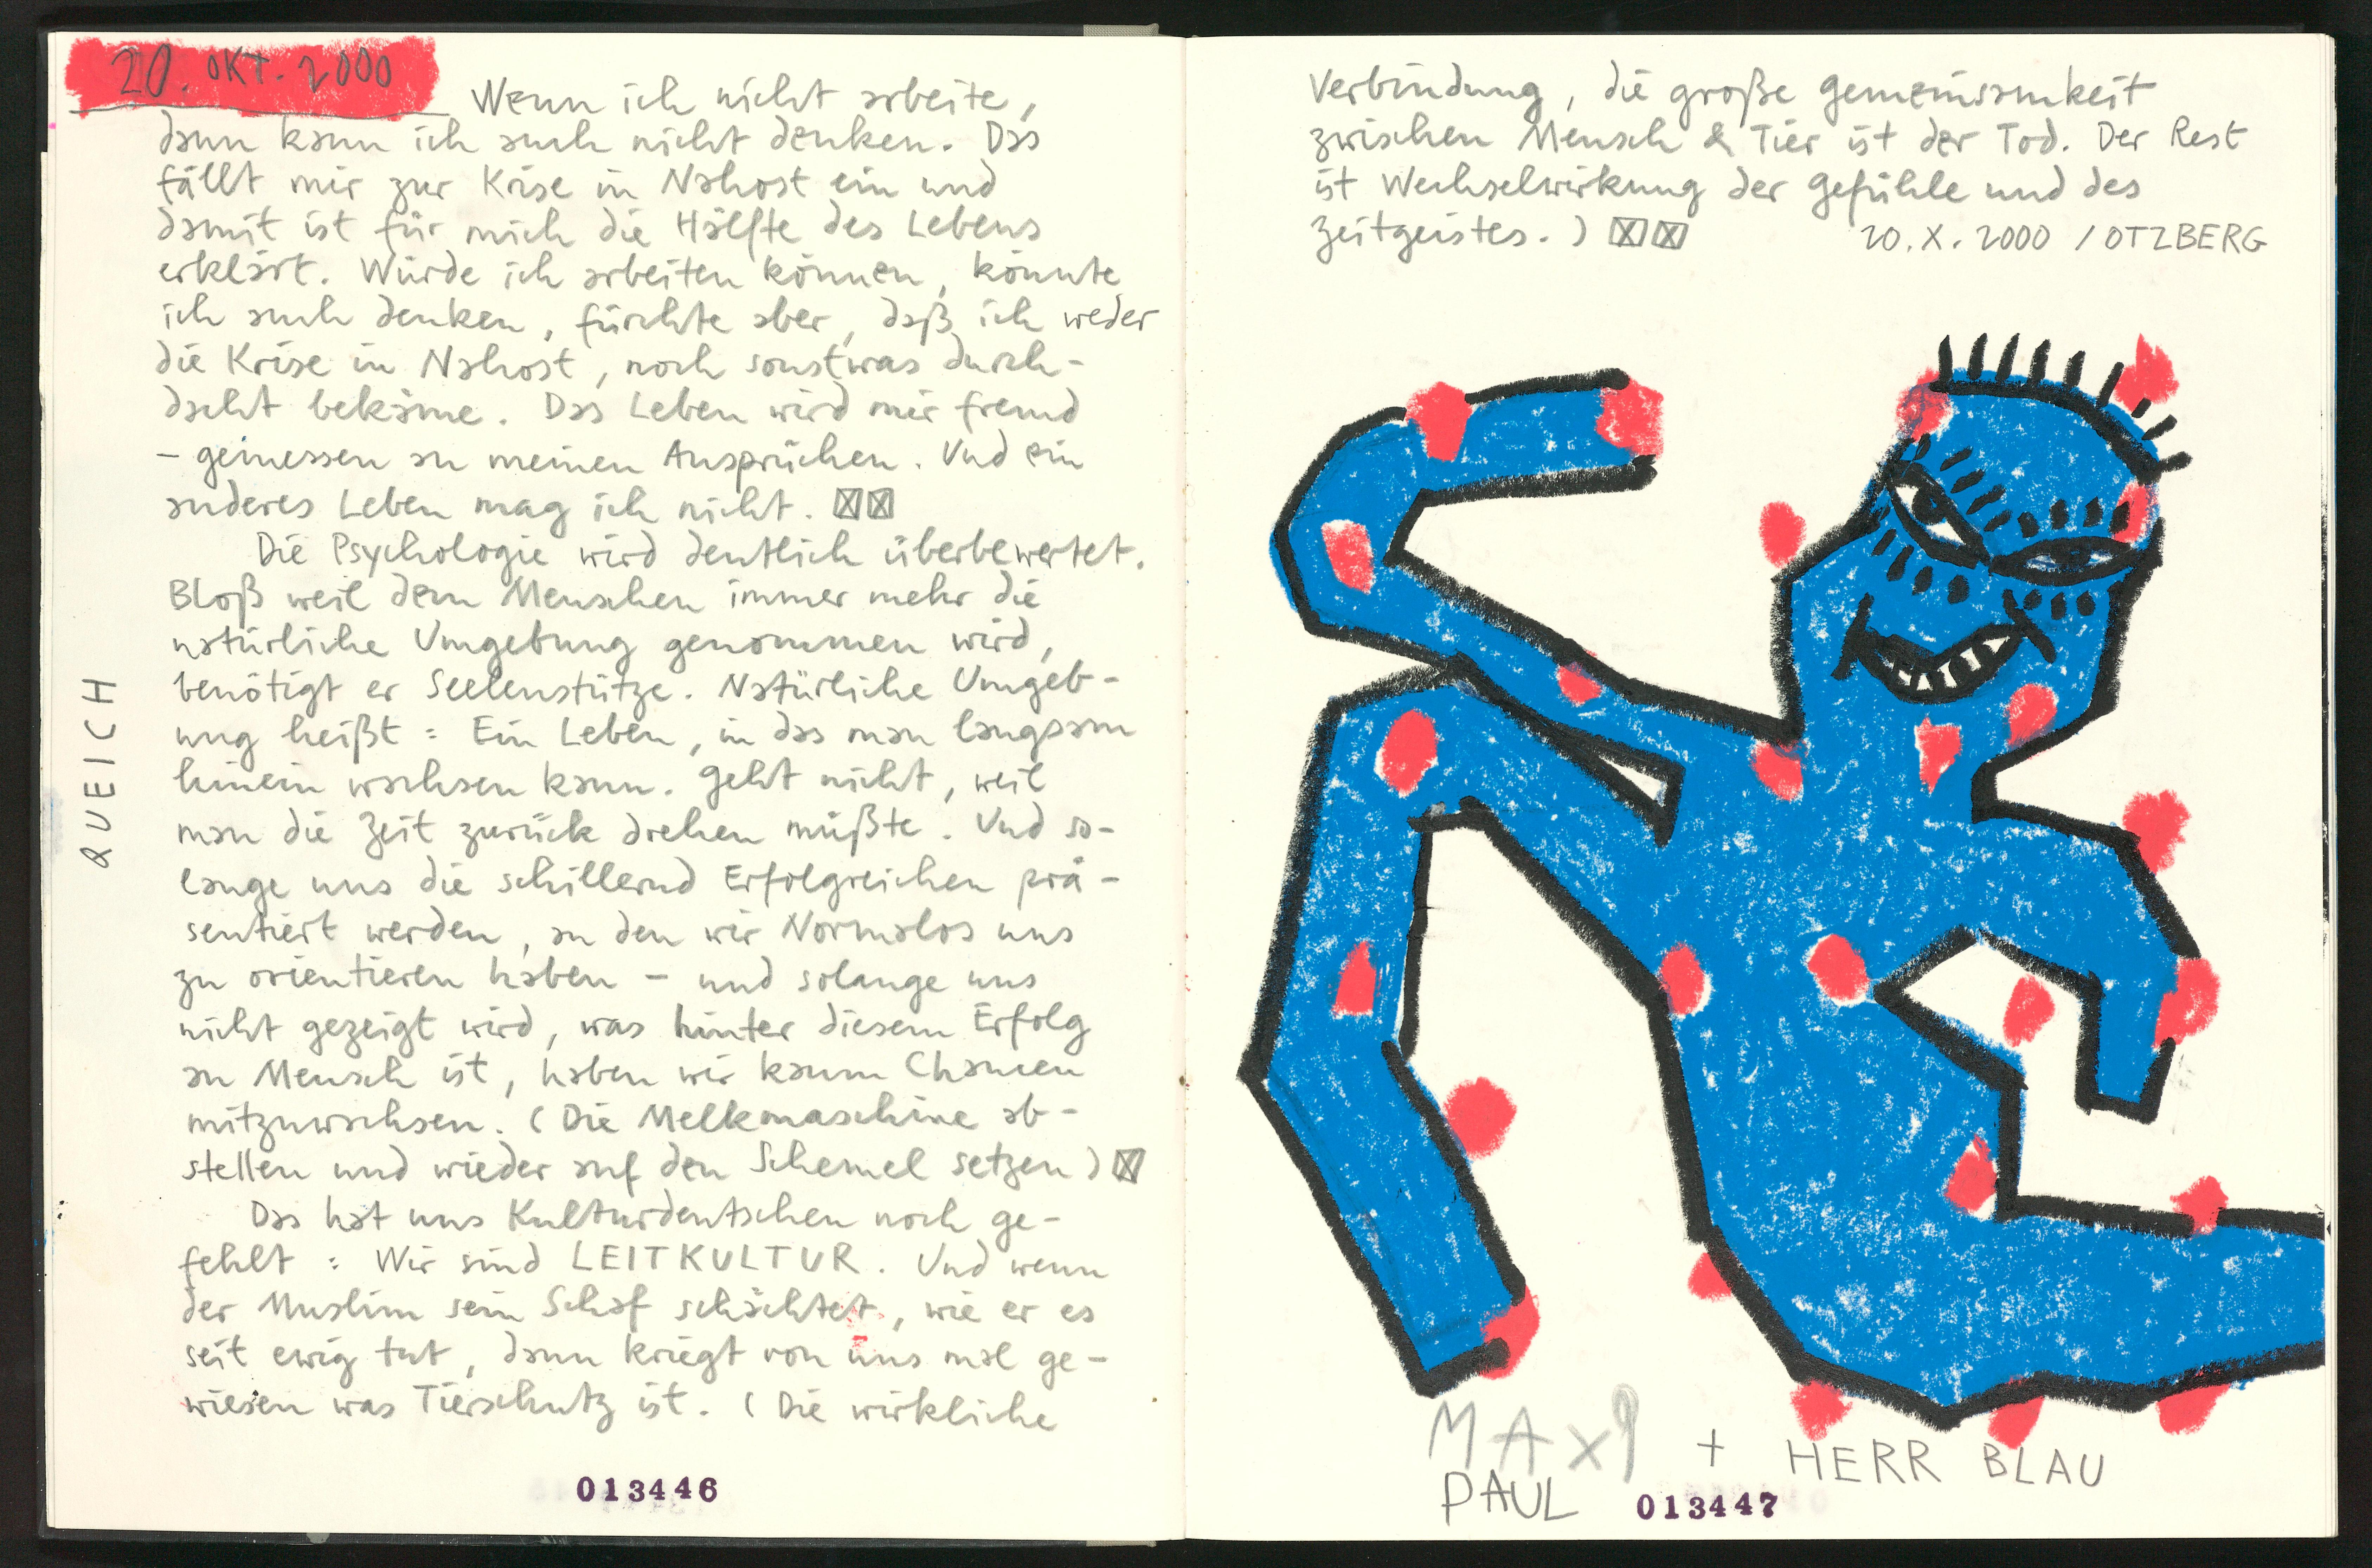 20. OKT. 2000
Wenn ich nicht arbeite,
dann kann ich auch nicht denken. Das
fällt mir zur Krise in Nahost ein und
damit ist für mich die Hälfte des Lebens
erklärt. Würde ich arbeiten können, könnte
ich auch denken, fürchte aber, daß ich weder
die Krise in Nahost, noch sonstwas durch-
dacht bekäme. Das Leben wird mir fremd
– gemessen an meinen Ansprüchen. Und ein
anderes Leben mag ich nicht. ☒☒
Die Psychologie wird deutlich überbewertet.
Bloß weil dem Menschen immer mehr die
natürliche Umgebung genommen wird,
benötigt er Seelenstütze. Natürliche Umgeb-
ung heißt: Ein Leben, in das man langsam
hinein wachsen kann. Geht nicht, weil
man die Zeit zurück drehen müßte. Und so-
lange uns die schillernd Erfolgreichen prä-
sentiert werden, an den wir Normalos uns
zu orientieren haben – und solange uns
nicht gezeigt wird, was hinter diesem Erfolg
an Mensch ist, haben wir kaum Chancen
mitzuwachsen. (Die Melkmaschine ab-
stellen und wieder auf den Schemel setzen) ☒
Das hat uns Kulturdeutschen noch ge-
fehlt: Wir sind LEITKULTUR. Und wenn
der Muslim sein Schaf schächtet, wie er es
seit ewig tut, dann kriegt von uns mal ge-
wiesen was Tierschutz ist. (Die wirkliche
QUEICH
013446
Verbindung, die große Gemeinsamkeit
zwischen Mensch & Tier ist der Tod. Der Rest
ist Wechselwirkung der Gefühle und des
Zeitgeistes.) ☒☒
20.X.2000 / OTZBERG
MAX9 + HERR BLAU
PAUL
013447